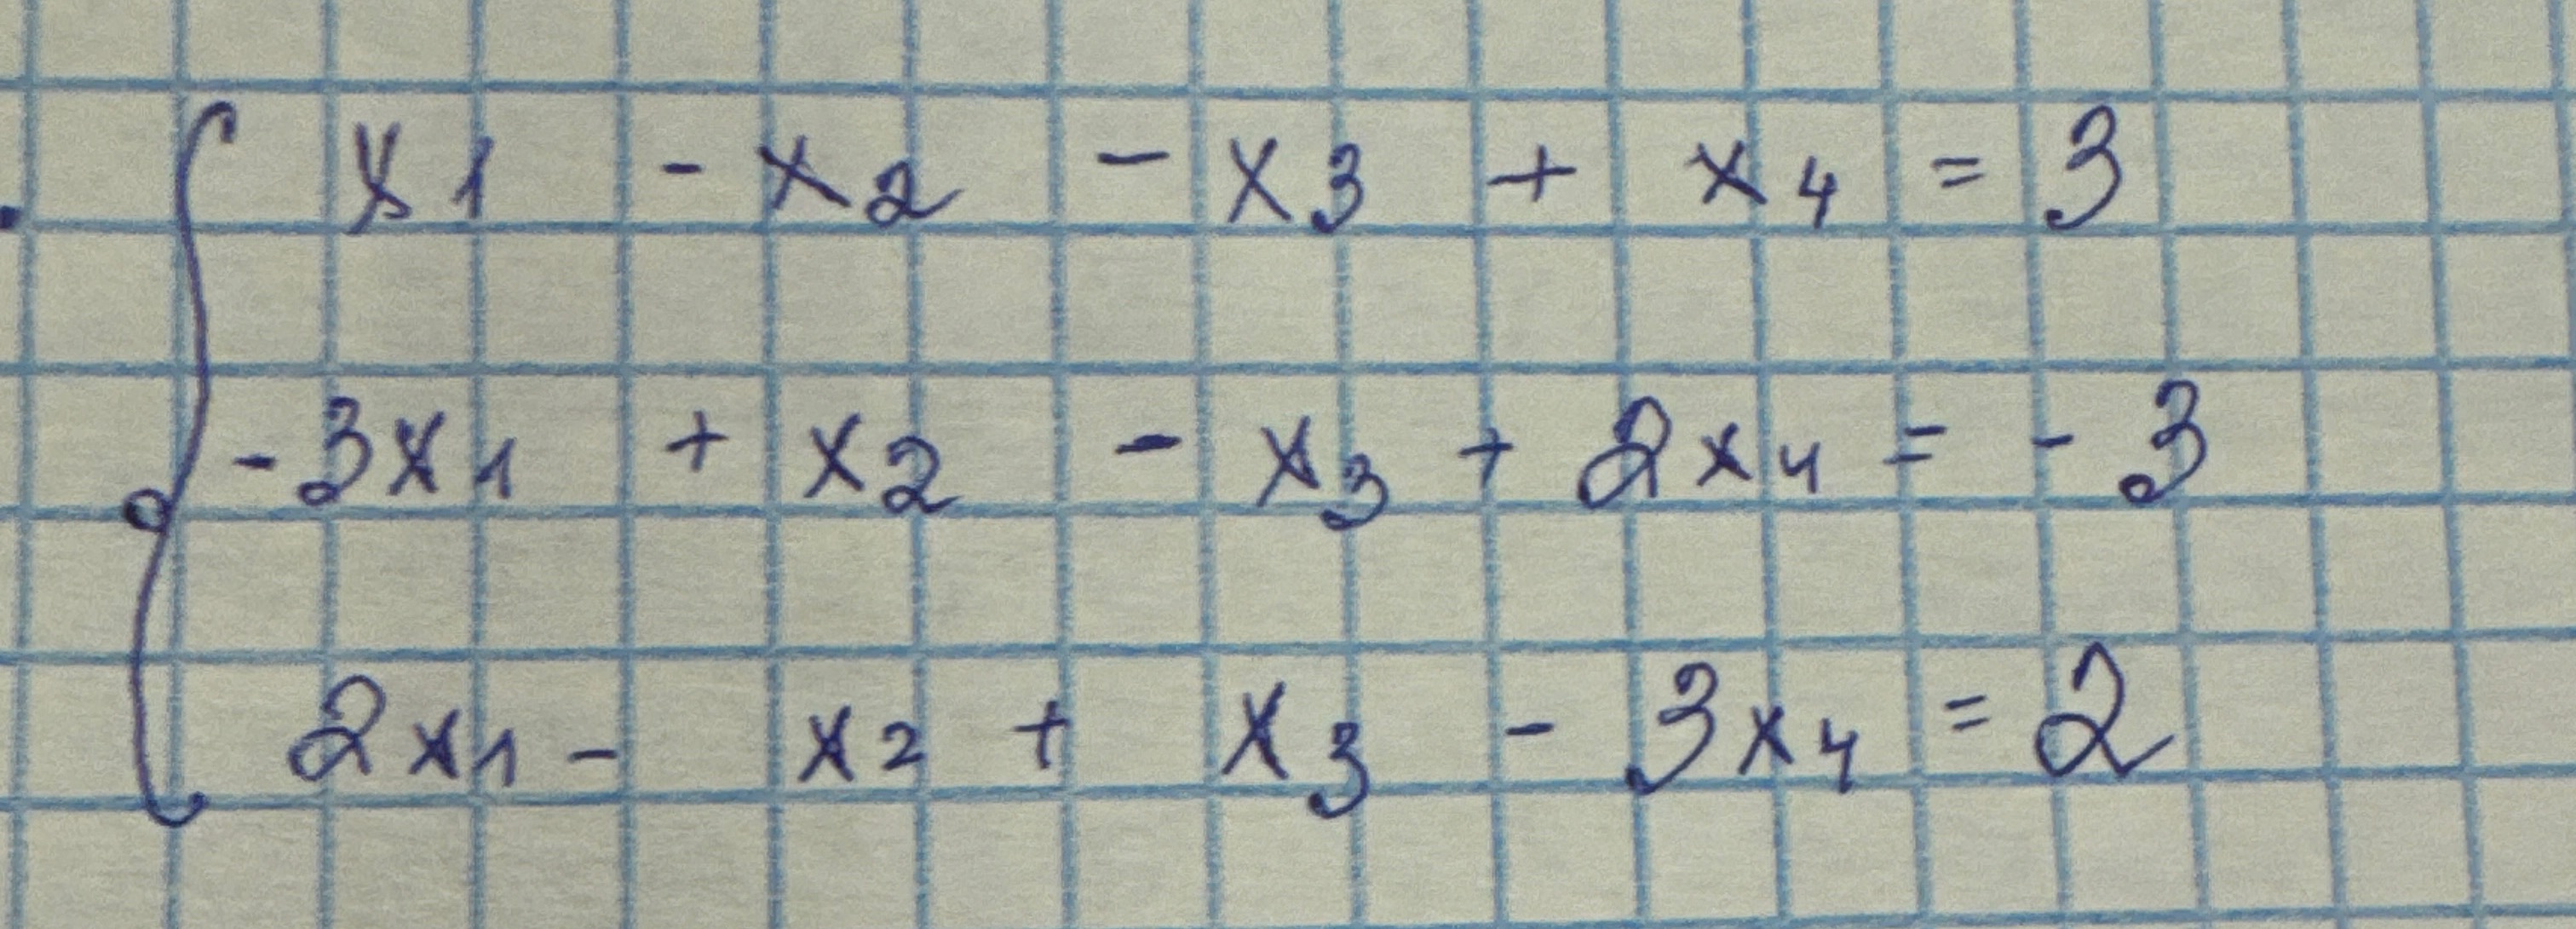 x1 - x2 - x3 + x4 = 3
-3x1 + x2 - x3 + 2x4 = -3
2x1 - x2 + x3 - 3x4 = 2